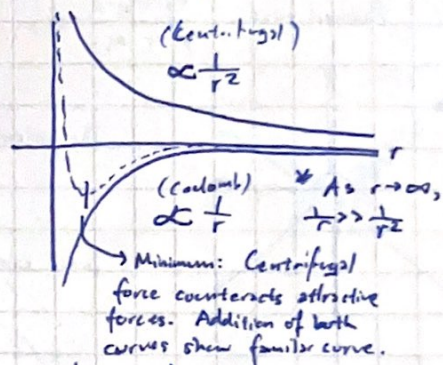 (Centrifugal)
∝ 1/r²
r
(Coulomb)
∝ 1/r
* As r→∞,
1/r >> 1/r²
Minimum: Centrifugal
force counteracts attractive
forces. Addition of both
curves show familiar curve.